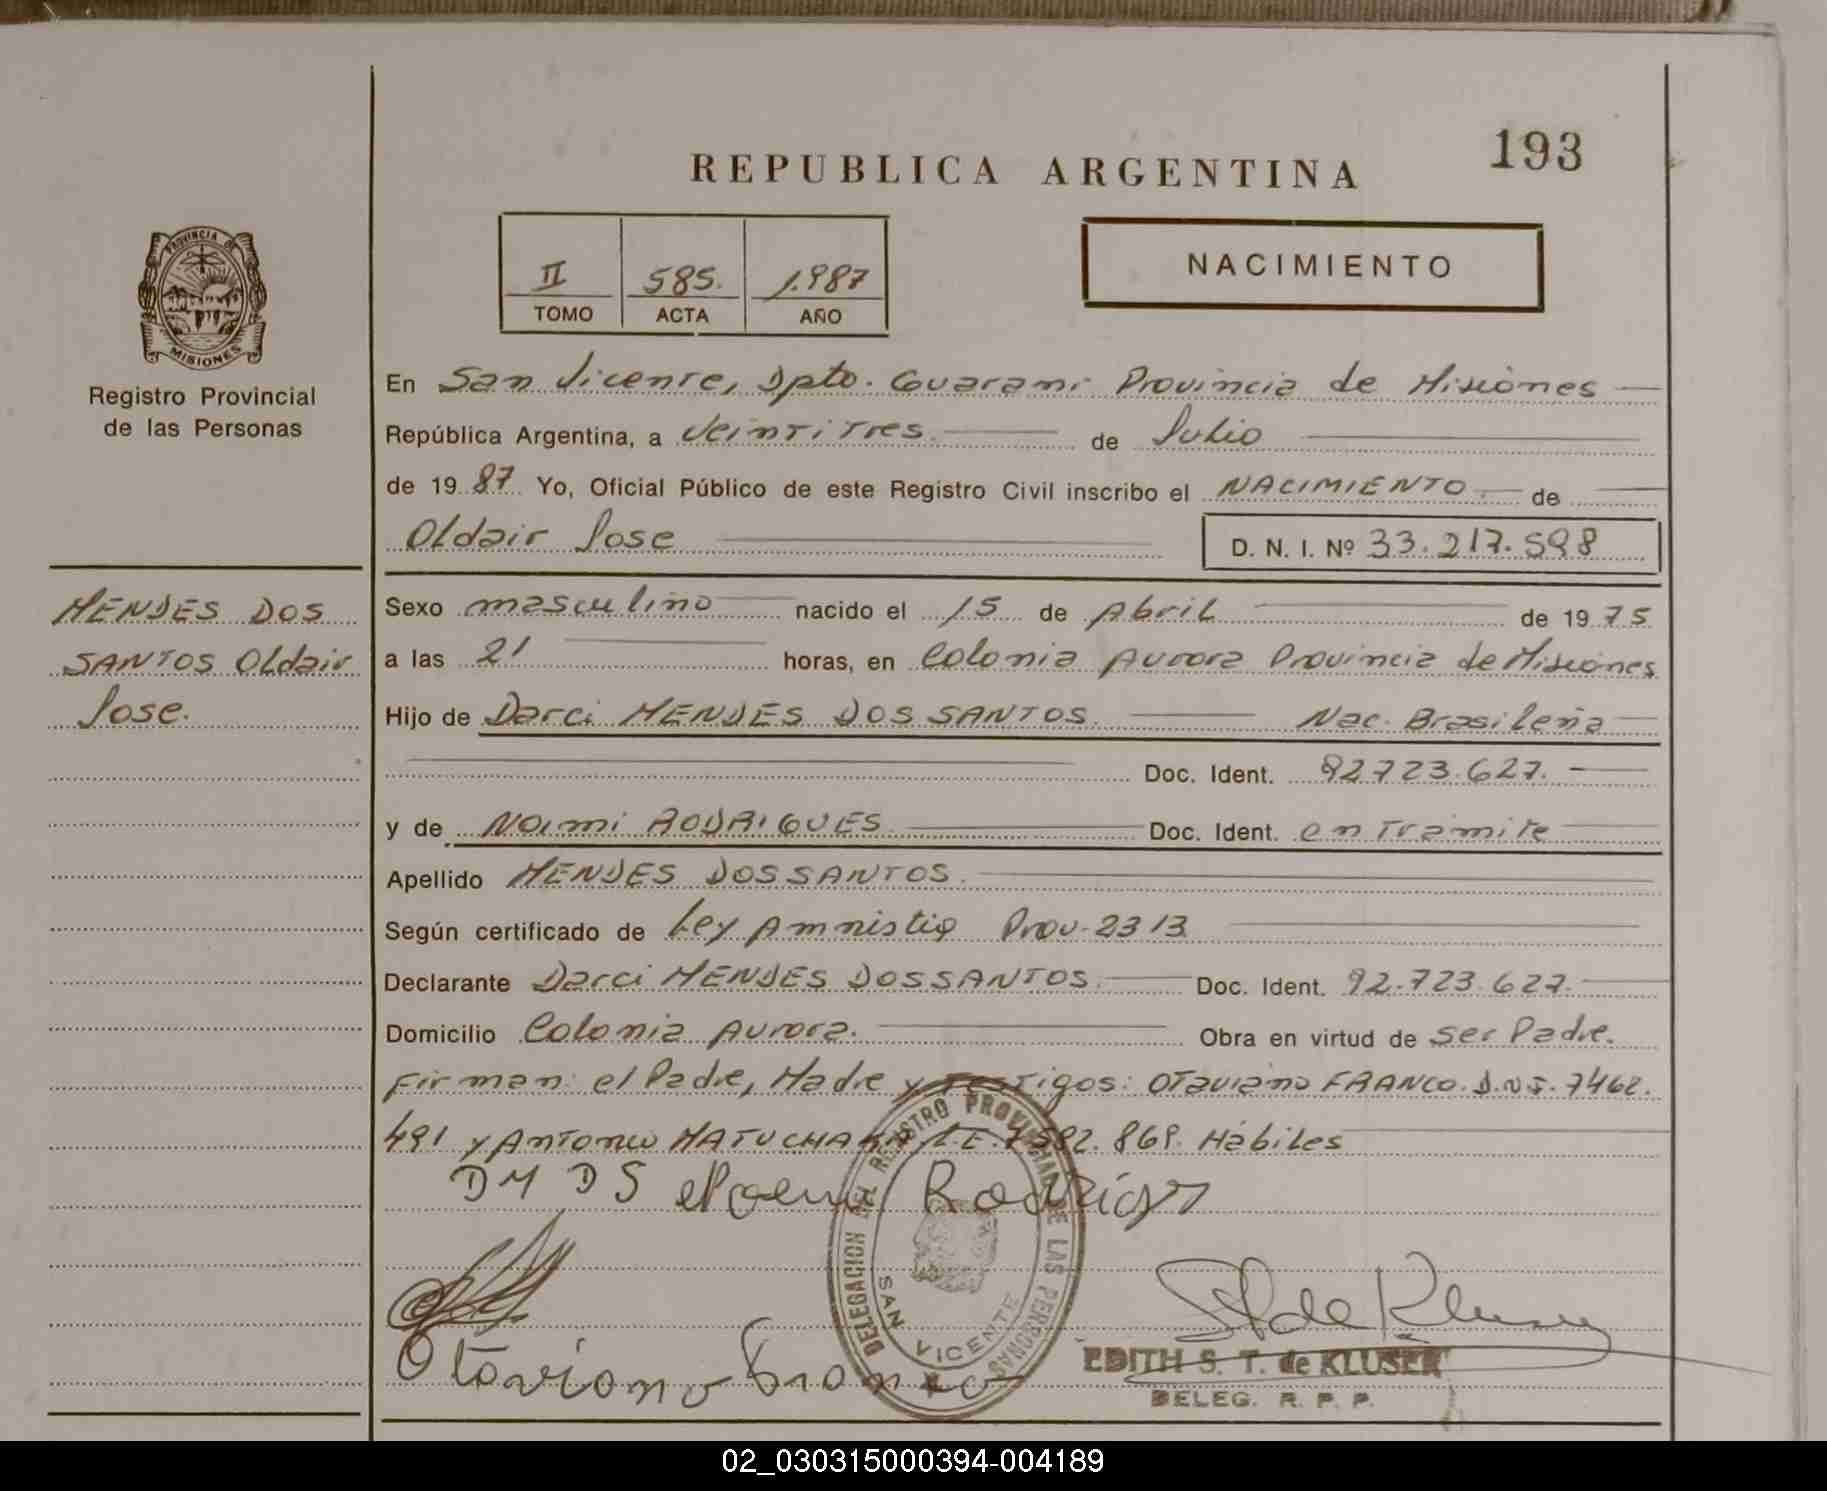 193
REPUBLICA ARGENTINA
II 585. 1.987
TOMO ACTA AÑO
NACIMIENTO
PROVINCIA DE
MISIONES
Registro Provincial
de las Personas
En San Vicente, Dpto. Guarani Provincia de Misiones
República Argentina, a Veintitres de Julio
de 19 87 Yo, Oficial Público de este Registro Civil inscribo el NACIMIENTO. de
Oldair Jose D. N. I. Nº 33.217.598
MENDES DOS
SANTOS Oldair
Jose.
Sexo masculino nacido el 15 de Abril de 19 75
a las 21 horas, en Colonia Aurora Provincia de Misiones
Hijo de Darci MENDES DOS SANTOS. Nac. Brasileña
Doc. Ident. 92723.627.
y de Noimi RODRIGUES. Doc. Ident. en Tramite
Apellido MENDES DOSSANTOS.
Según certificado de Ley Amnistia Prov. 2313
Declarante Darci MENDES DOSSANTOS. Doc. Ident. 92.723.627.
Domicilio Colonia Aurora. Obra en virtud de Ser Padre.
Firman: el Padre, Madre y Testigos: OTaviano FRANCO. D.N.I. 7462.
491 y Antonio L.E. 7582.869. Hábiles
DM DS
DELEGACION DEL REGISTRO PROVINCIAL DE LAS PERSONAS
SAN VICENTE
Otaviano Franco
EDITH S. T. de KLUSER
DELEG. R. P. P.
02_030315000394-004189